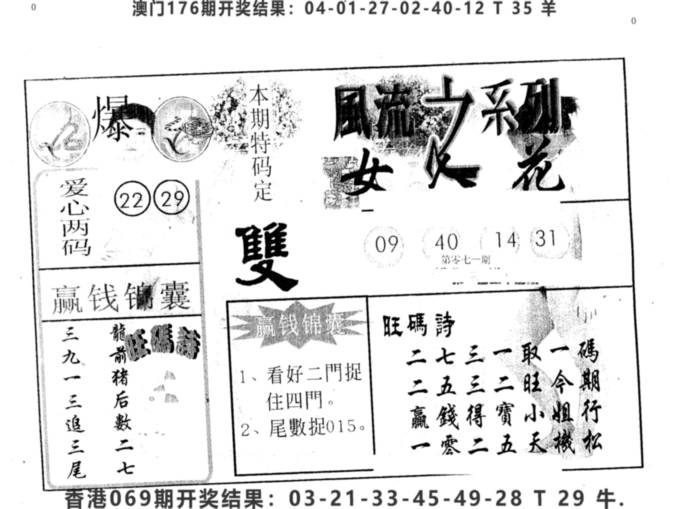 0
澳门176期开奖结果：04-01-27-02-40-12 T 35 羊
0
爆
本期特码定
風流之系列
女人花
爱心两码
22 29
雙
09 40 14 31
第零七一期
赢钱锦囊
旺碼詩
龍前猪后數二七
三九一三追三尾
赢钱锦囊
1、看好二門捉
住四門。
2、尾數捉015。
旺碼詩
碼期行松
一今姐機
取旺小天
一二寶五
三三得二
七五錢零
二二贏一
香港069期开奖结果：03-21-33-45-49-28 T 29 牛.